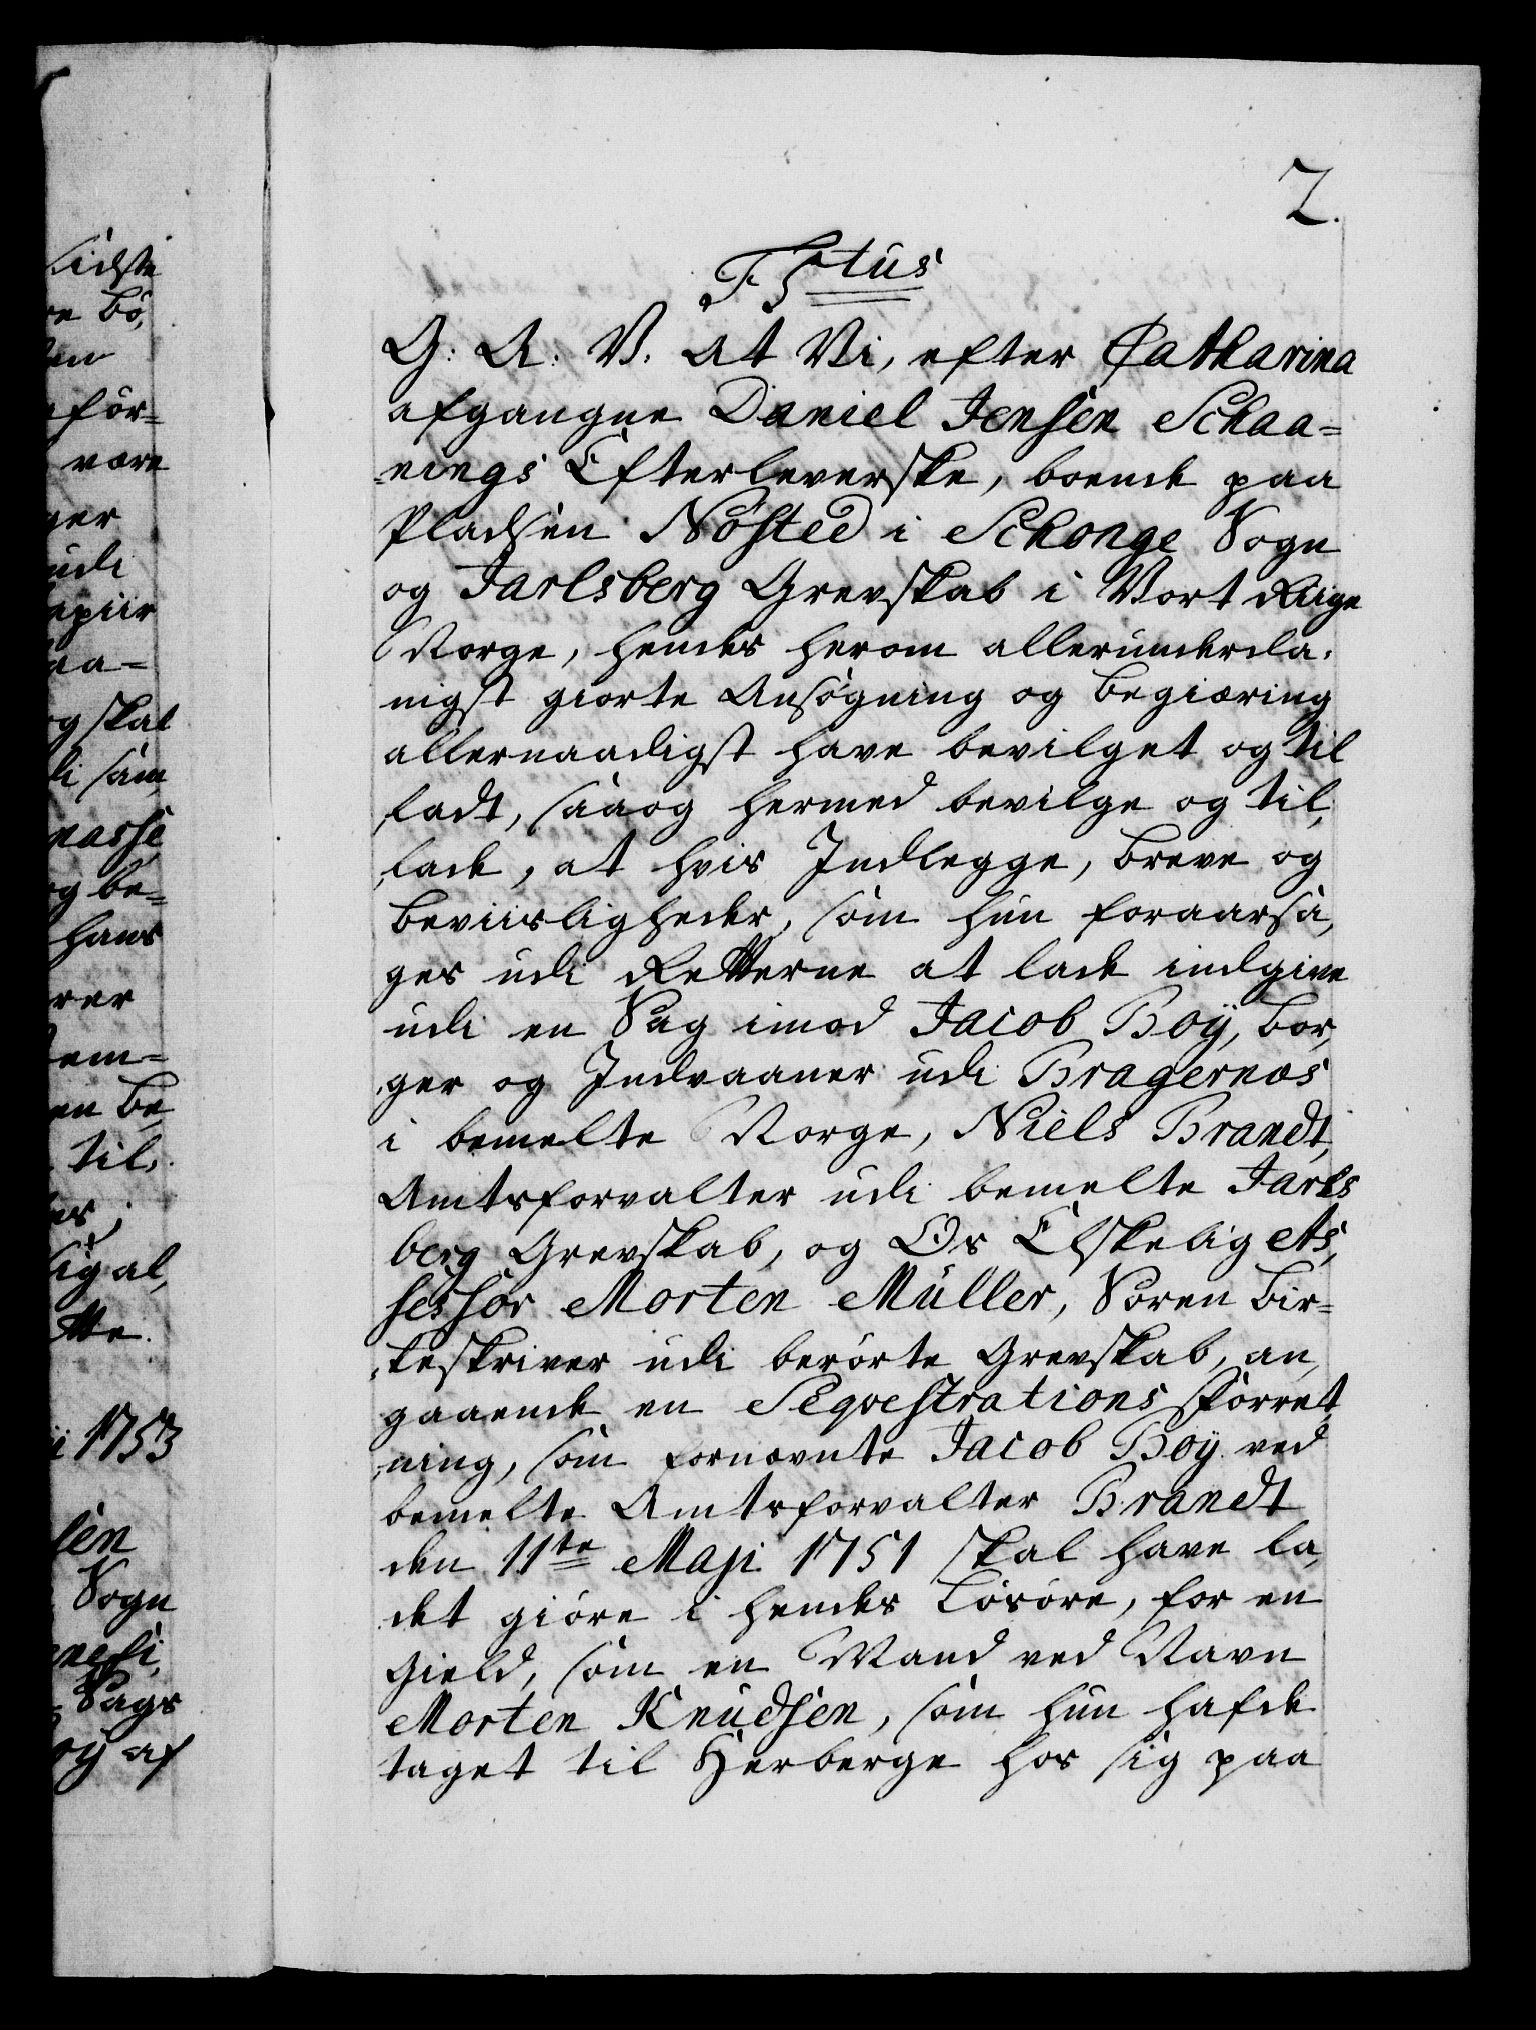 lidste
re bö,
den
för=
være
ger
udi
apiir
aa=
og skal
di sam,
masse
og be=
hans
rer
em=
en be,
til,
es,
lig al,
tte.
ii 1753
sen
Sogn
enefi,
Sags
oÿ af
2.
F5tus
G: A: V. at Vi, efter Catharina
afgangne Daniel Jensen Schaa=
nings Efterleverske, boende paa
Pladsen Nösted i Schonge Sogn
og Jarlsberg Grevskab i Vort Riige
Norge, hendes herom allerunderda,
nigst giorte Ansögning og begiæring
allernaadigst have bevilget og til
ladt, saaog hermed bevilge og til,
lade, at hvis Indlegge, breve og
beviisligheder, som hun foraarsa,
ges udi Retterne at lade indgive
udi en Sag imod Jacob Boÿ, bor,
ger og Indvaaner udi Bragernæs
i bemelte Norge, Niels Brandt,
Amtsforvalter udi bemelte Jarls
berg Grevskab, og Os Elskelig As,
sessor Morten Müller, Soren bir=
keskriver udi berörte Grevskab, an,
gaaende en Seqvestrations forret,
ning, som fornævnte Jacob Boÿ ved
bemelte Amtsforvalter Brandt
den 11te Maji 1751 skal have la,
det giöre i hendes Lösöre, for en
Gield, som en Mand ved Navn
Morten Knudsen, som hun hafde
taget til Herberge hos sig paa